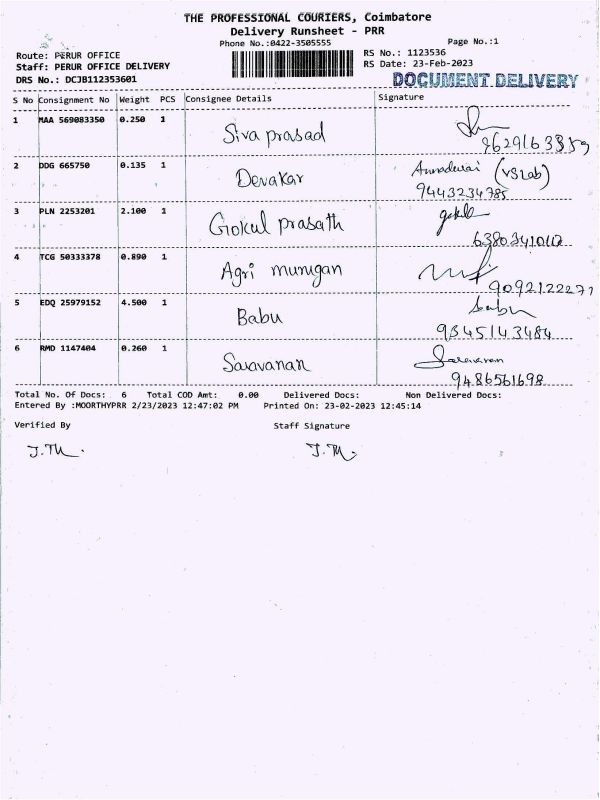 THE PROFESSIONAL COURIERS, Coimbatore
Delivery Runsheet - PRR
Phone No.:0422-3505555
Page No.:1
Route: PERUR OFFICE
RS No.: 1123536
Staff: PERUR OFFICE DELIVERY
RS Date: 23-Feb-2023
DRS No.: DCJB112353601
DOCUMENT DELIVERY
S No Consignment No Weight PCS Consignee Details Signature
1 MAA 569083350 0.250 1 Siva prasad
2 DDG 665750 0.135 1 Devakar (VS Lab)
9443234785
3 PLN 2253201 2.100 1 Gokul prasath gokul
6380341012
4 TCG 50333378 0.890 1 Agri murugan
9092122277
5 EDQ 25979152 4.500 1 Babu babu
9345143484
6 RMD 1147404 0.260 1 Saravanan Saravanan
9486561698
Total No. Of Docs: 6 Total COD Amt: 0.00 Delivered Docs: Non Delivered Docs:
Entered By :MOORTHYPRR 2/23/2023 12:47:02 PM Printed On: 23-02-2023 12:45:14
Verified By Staff Signature